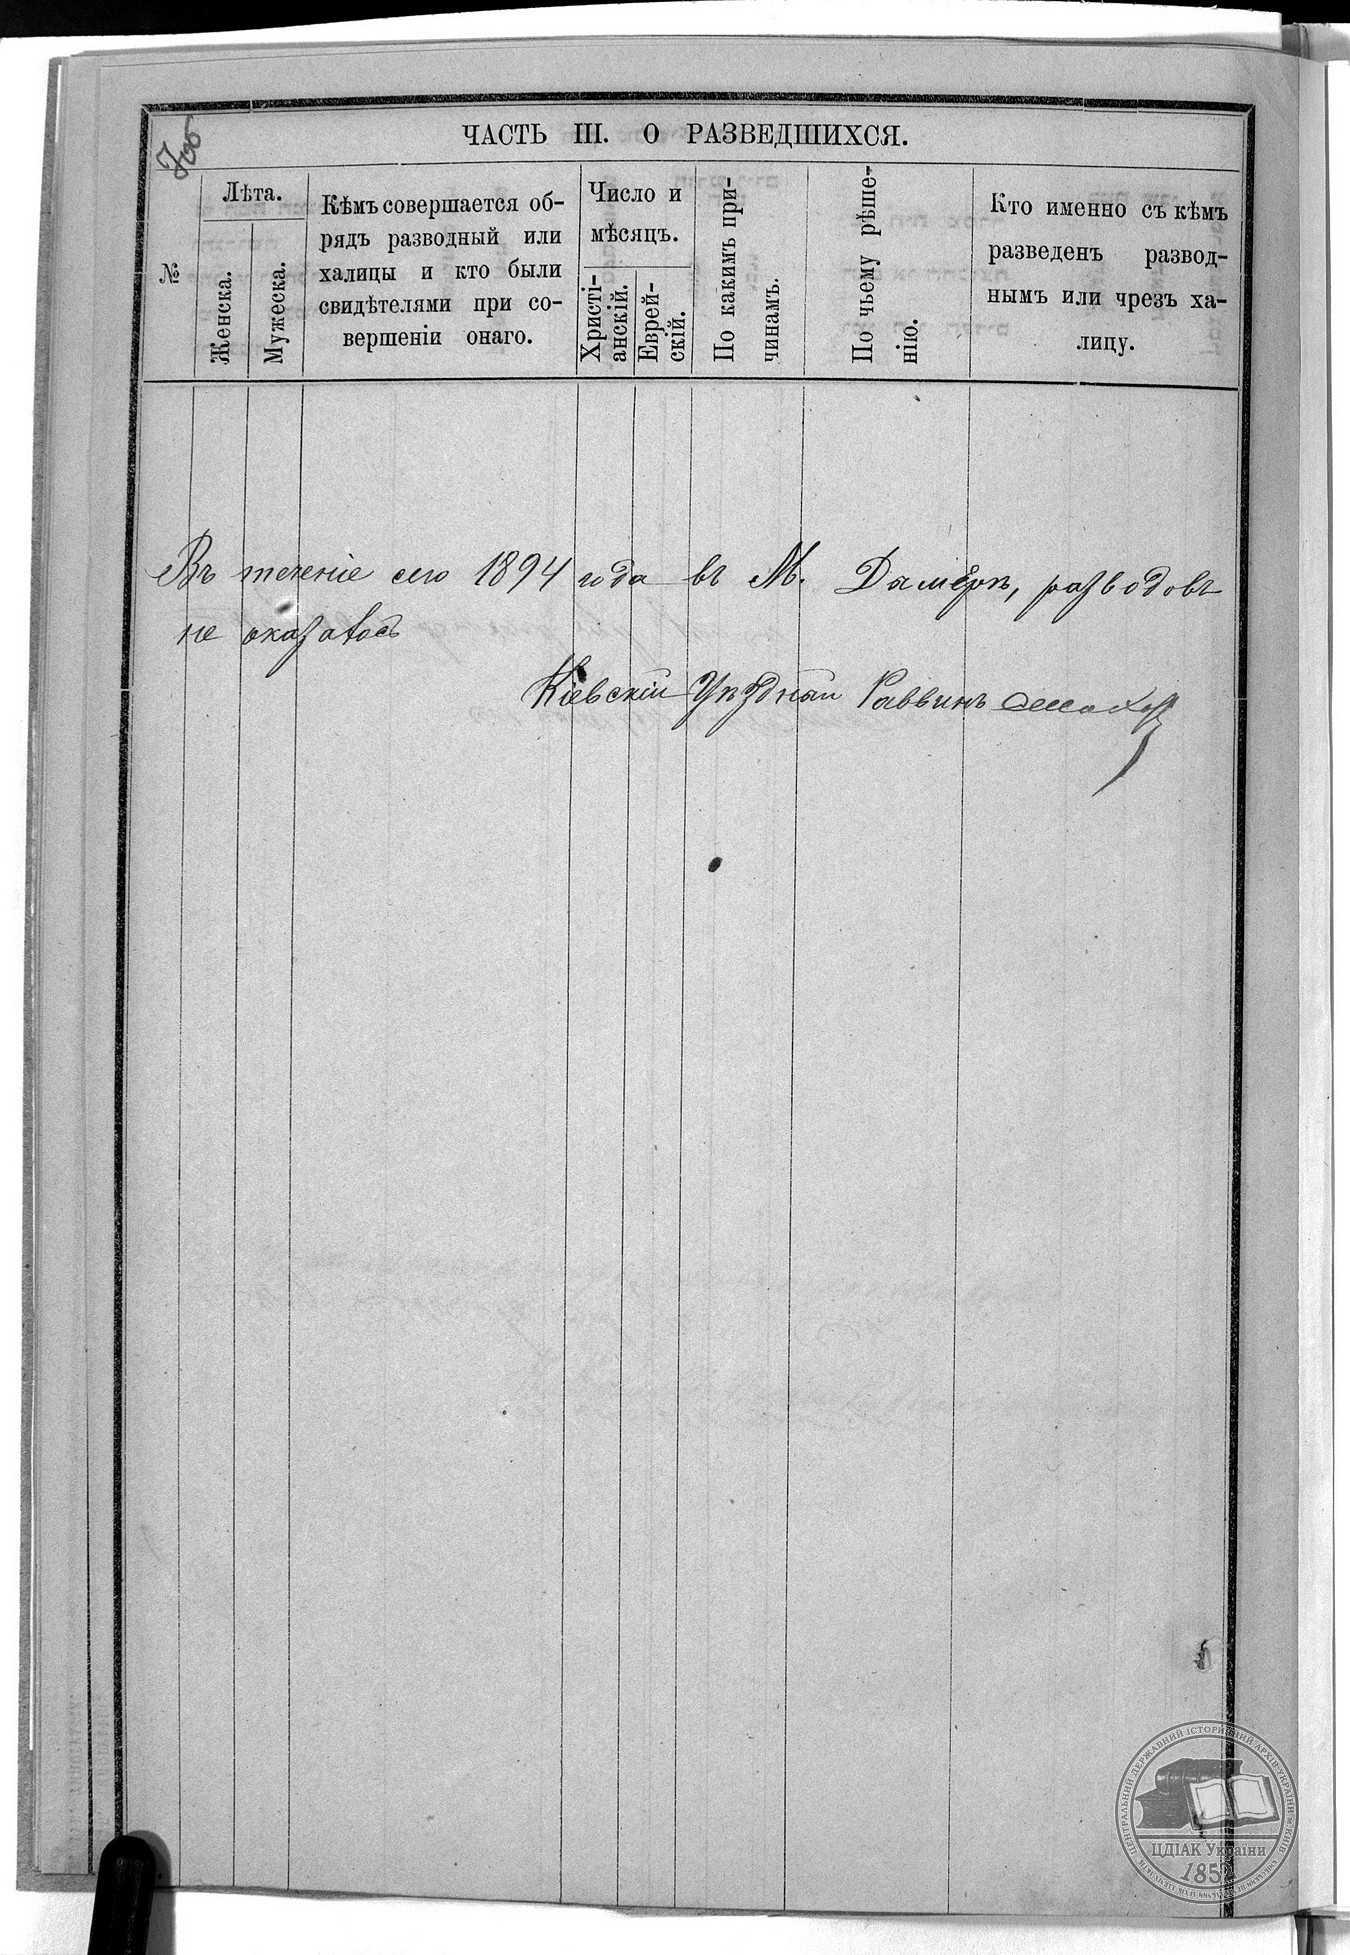 ЧАСТЬ III. О РАЗВЕДШИХСЯ.
№
Лѣта.
Женска.
Мужеска.
Кѣмъ совершается об-
рядъ разводный или
халицы и кто были
свидѣтелями при со-
вершеніи онаго.
Число и
мѣсяцъ.
Христі-
анскій.
Еврей-
скій.
По какимъ при-
чинамъ.
По чьему рѣше-
нію.
Кто именно съ кѣмъ
разведенъ развод-
нымъ или чрезъ ха-
лицу.
Въ теченіе сего 1894 года въ М. Дамеркѣ, разводовъ
не оказалось
Кіевскій Уѣздный Раввинъ
ЦЕНТРАЛЬНИЙ ДЕРЖАВНИЙ ІСТОРИЧНИЙ АРХІВ УКРАЇНИ М. КИЇВ
ЦДІАК України
1852